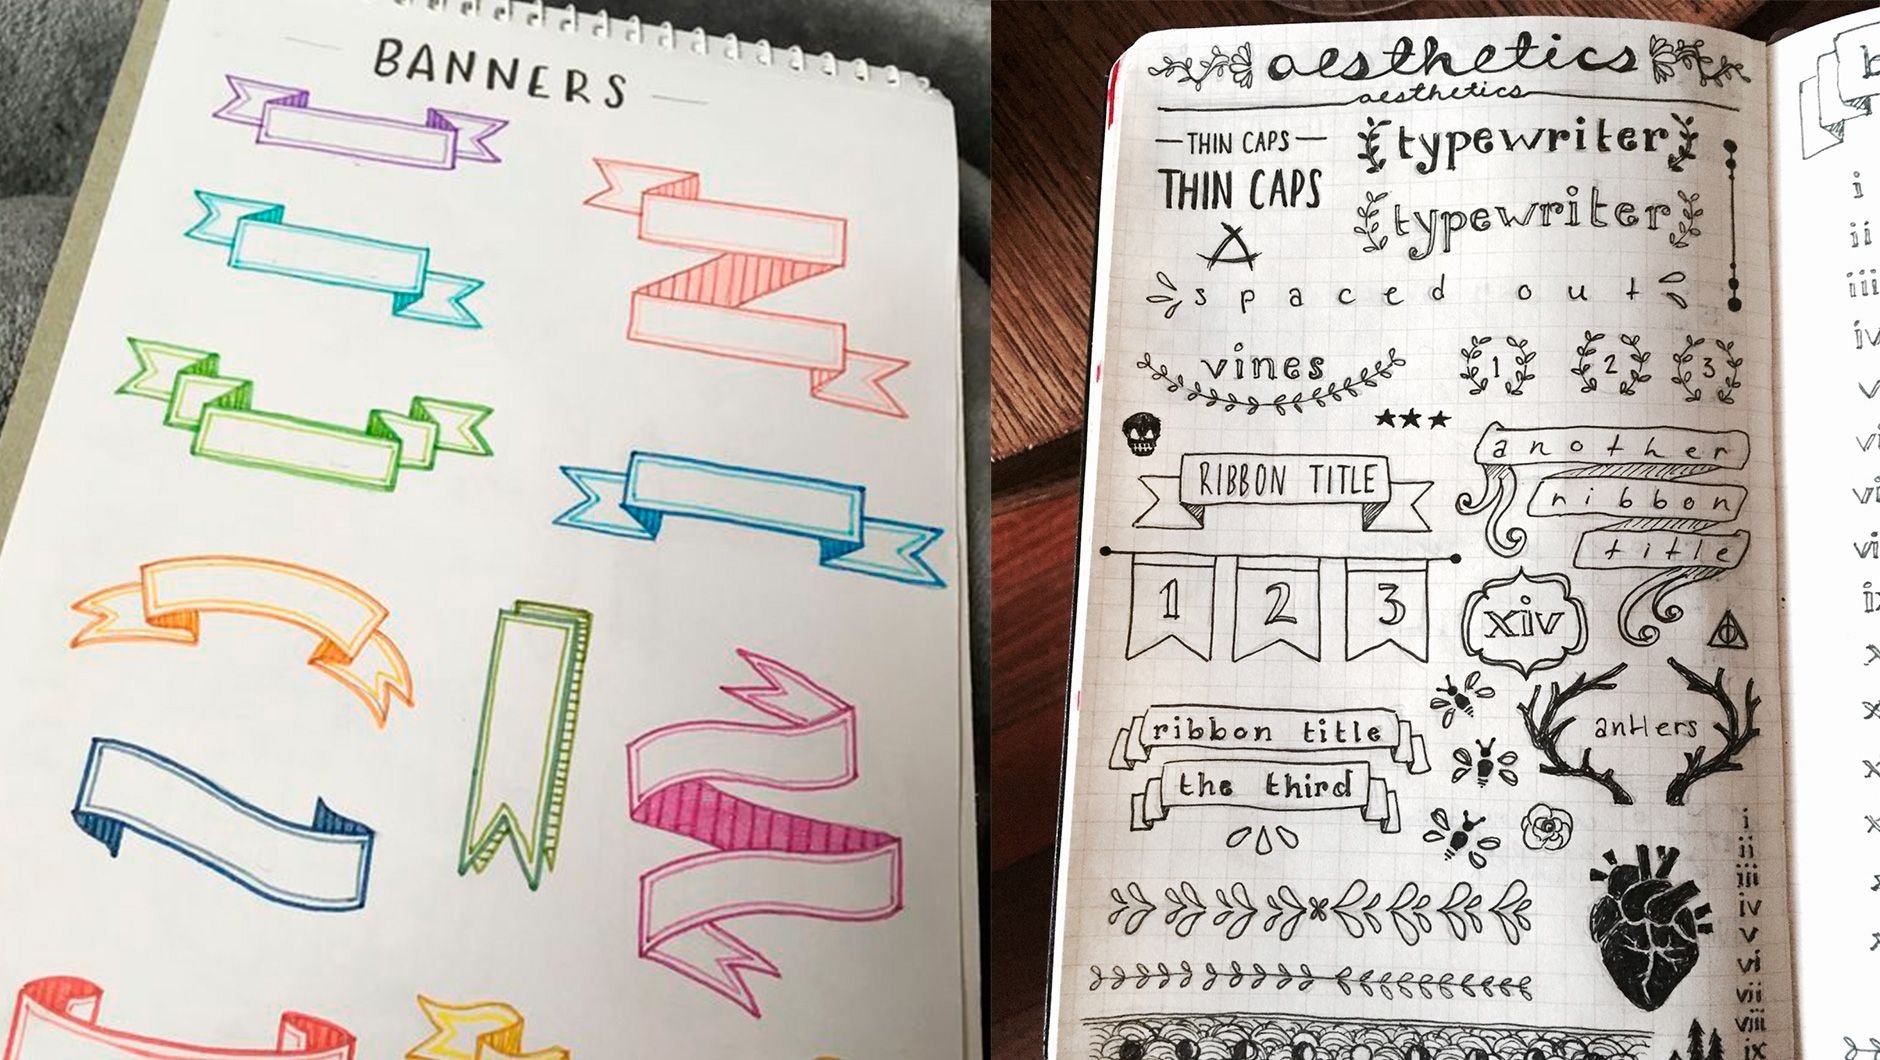 BANNERS
aesthetics
aesthetics
THIN CAPS
typewriter
THIN CAPS
typewriter
spaced out
vines
1 2 3
another
RIBBON TITLE
ribbon
title
1 2 3
xiv
ribbon title
antlers
the third
i
ii
iii
iv
v
vi
vii
viii
ix
i
ii
iii